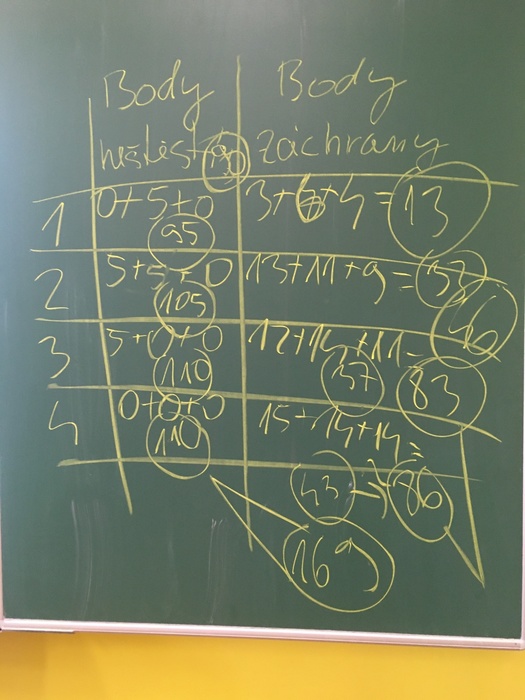 Body Body
neštěstí 90 záchrany
1 0+5+0 3+6+4=13
95
2 5+5+0 13+11+9=33
105 46
3 5+0+0 12+14+11=
110 37 83
4 0+0+0 15+14+14=
110
43 → 86
169